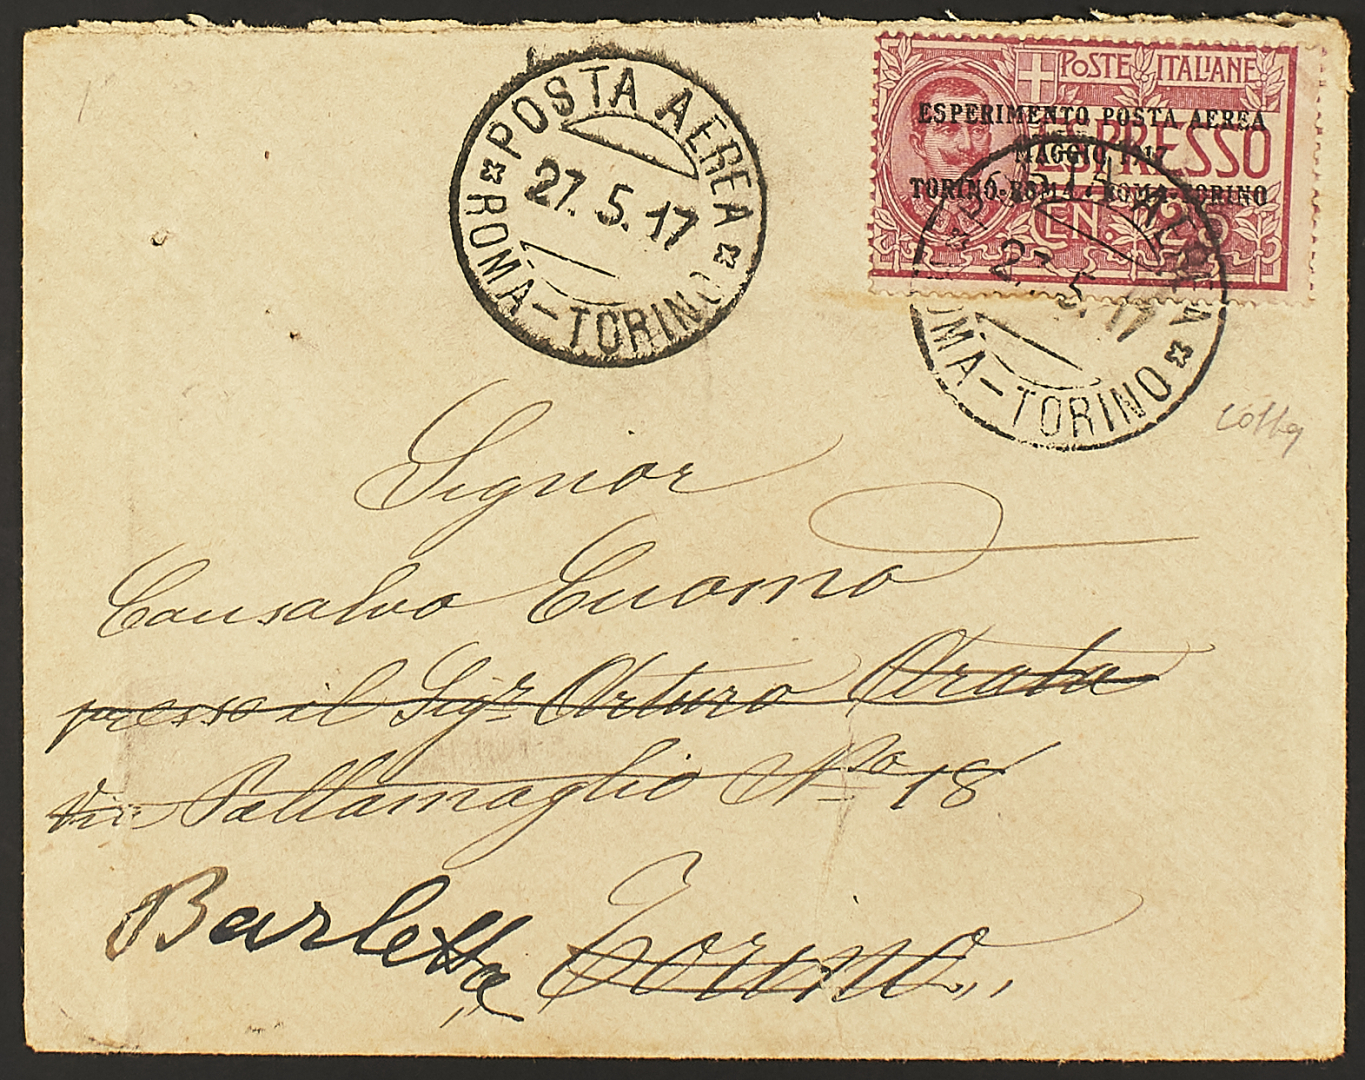 POSTA AEREA
27.5.17
ROMA-TORINO
POSTE ITALIANE
ESPRESSO
CEN. 25
ESPERIMENTO POSTA AEREA
MAGGIO 1917
TORINO-ROMA · ROMA-TORINO
POSTA AEREA
27.5.17
ROMA-TORINO
Signor
Consalvo Cuomo
presso il Sigr. Arturo Orata
Via Pallamaglio No 18
Barletta Torino